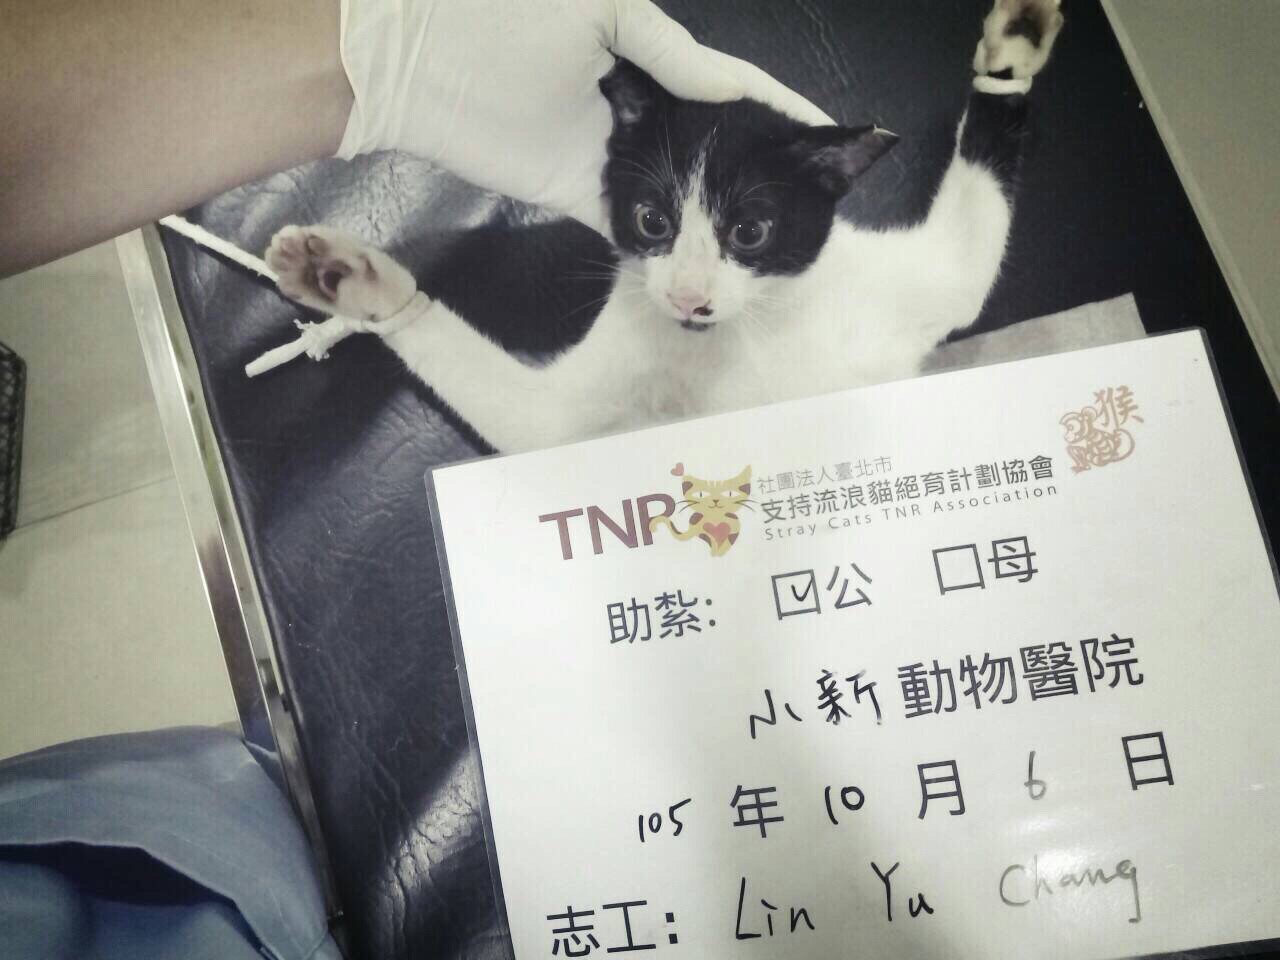 TNR
社團法人臺北市
支持流浪貓絕育計劃協會
Stray Cats TNR Association
猴
助紮: ☑公 □母
小新動物醫院
105年10月6日
志工: Lin Yu Chang